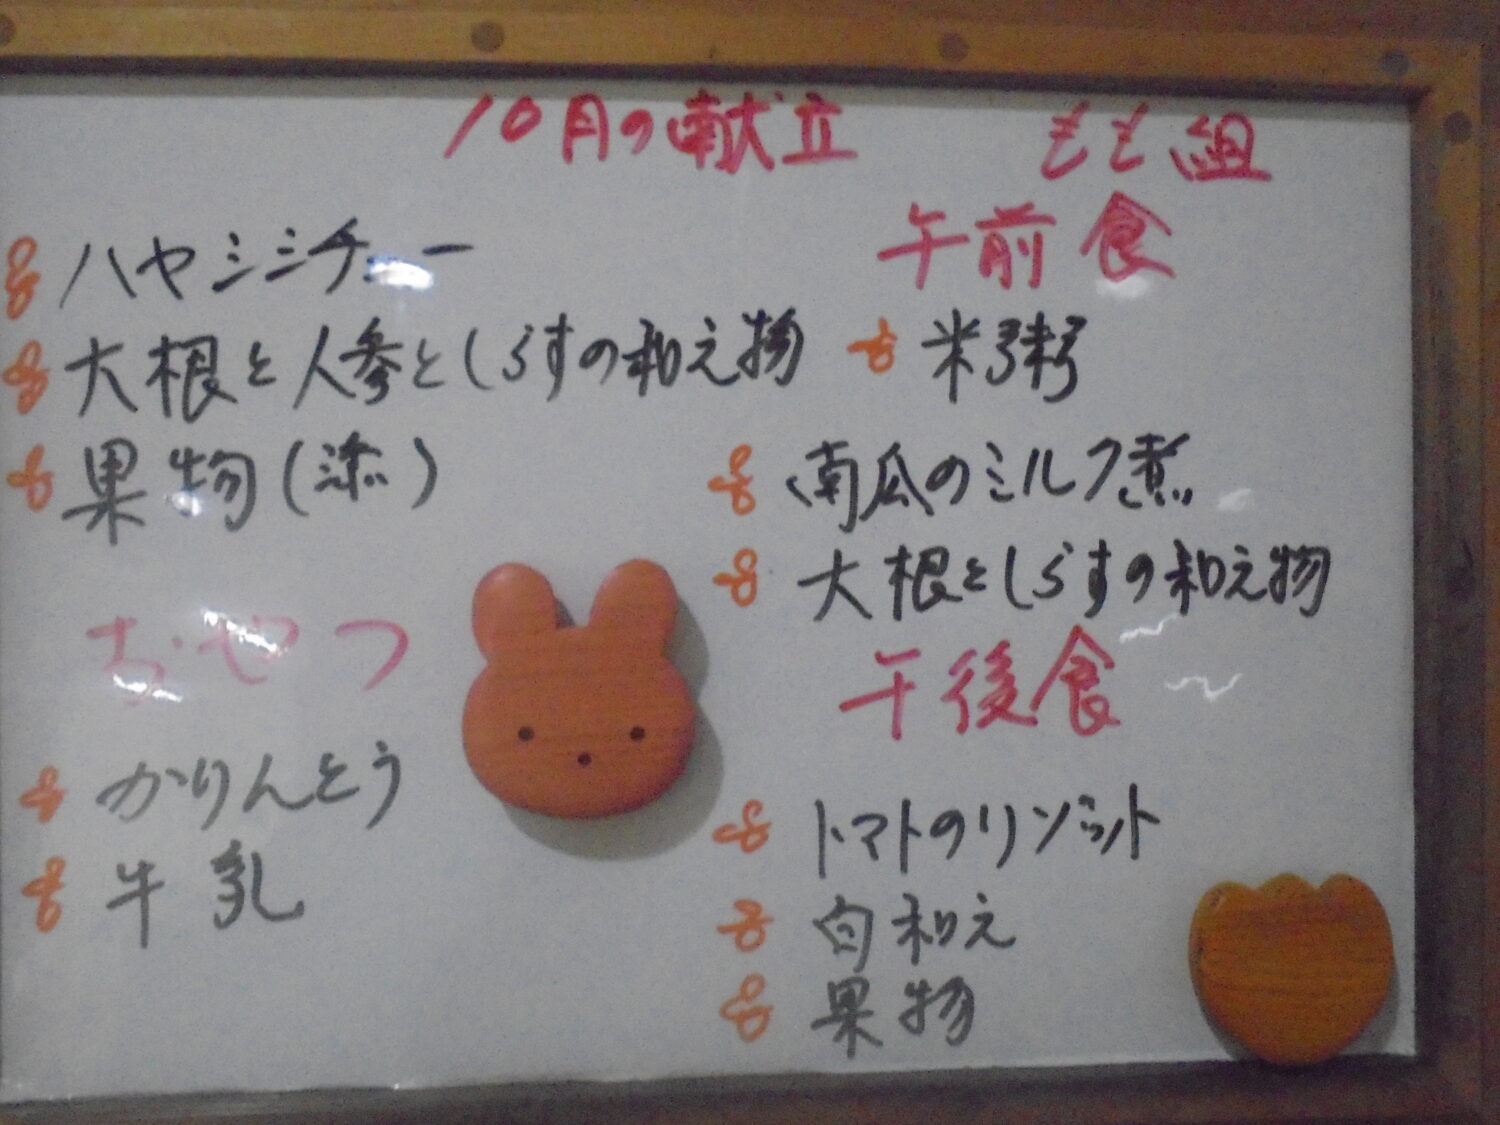 10月の献立
ハヤシシチュー
大根と人参としらすの和え物
果物(添)
おやつ
かりんとう
牛乳
もも組
午前食
米粥
南瓜のミルク煮
大根としらすの和え物
午後食
トマトのリゾット
白和え
果物